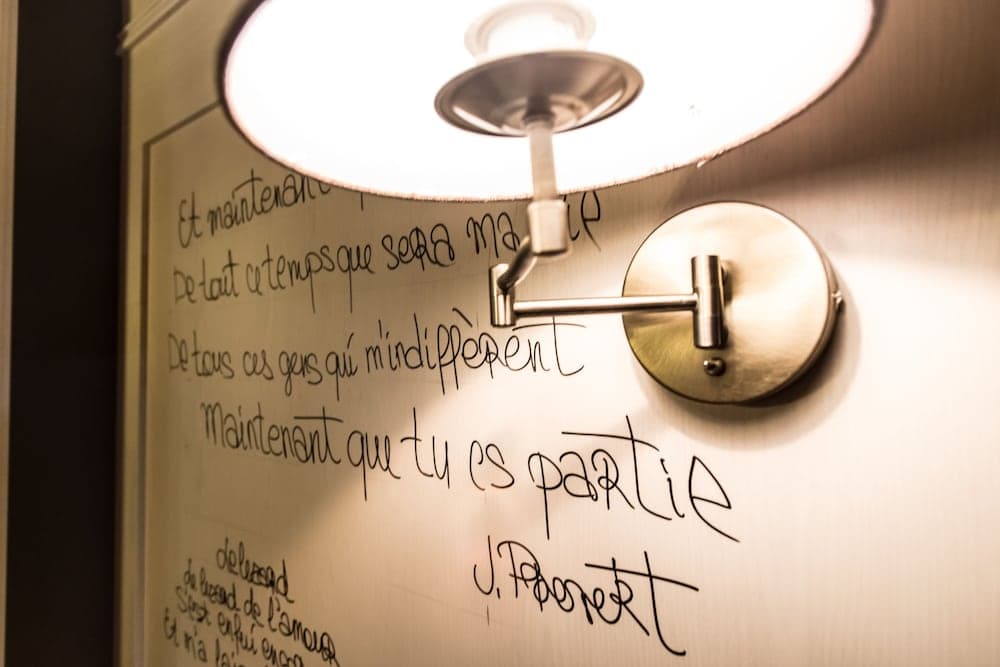 Et maintenant
De tout ce temps que sera ma
De tous ces gens qui m'indiffèrent
Maintenant que tu es partie
J.
lezard
lezard de l'amour
S'est enfui
Et m'a